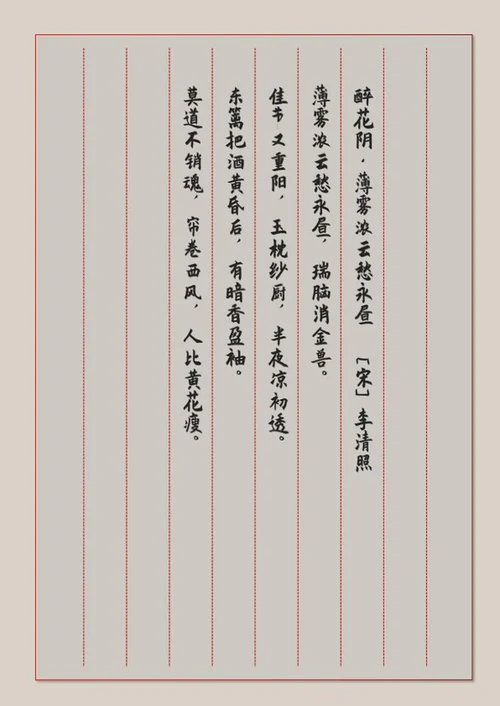 醉花阴·薄雾浓云愁永昼 [宋] 李清照
薄雾浓云愁永昼，瑞脑消金兽。
佳节又重阳，玉枕纱厨，半夜凉初透。
东篱把酒黄昏后，有暗香盈袖。
莫道不销魂，帘卷西风，人比黄花瘦。